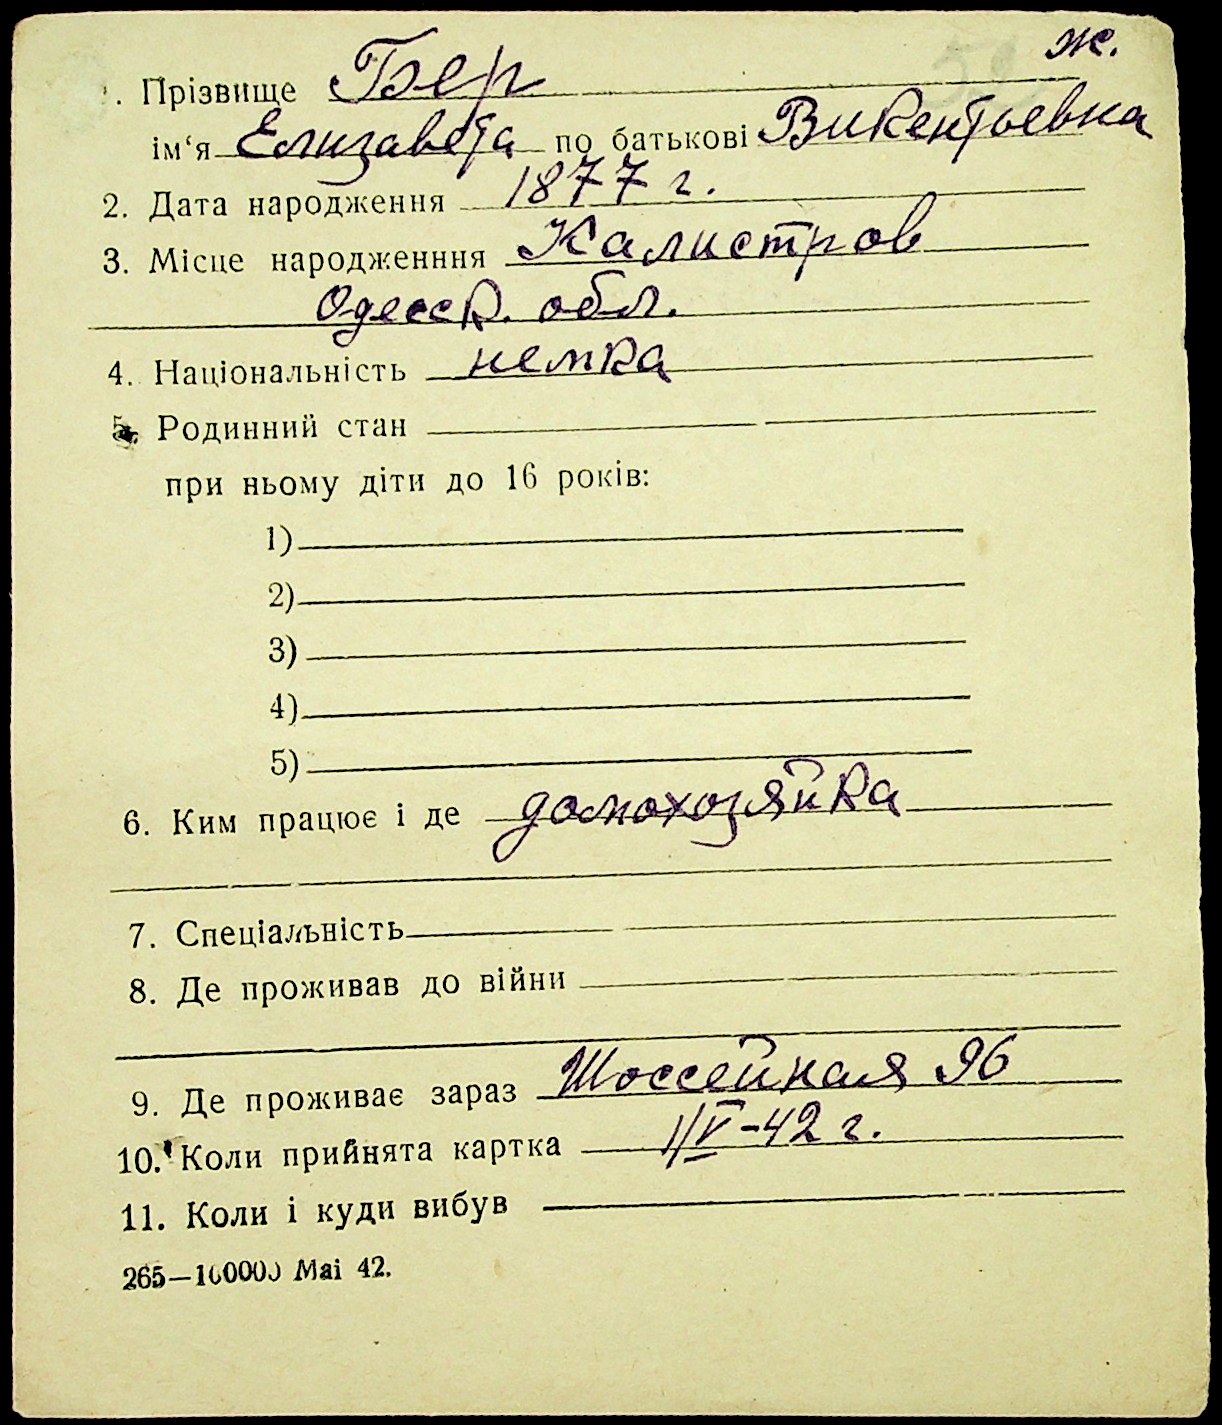 ж.
1. Прізвище Бер
ім‘я Елизавета по батькові Викентьевна
2. Дата народження 1877 г.
3. Місце народженння Калистров
Одесск. обл.
4. Національність немка
5. Родинний стан
при ньому діти до 16 років:
1)
2)
3)
4)
5)
6. Ким працює і де домохозяйка
7. Спеціальність
8. Де проживав до війни
9. Де проживає зараз Шоссейная 96
10. Коли прийнята картка 1/V-42 г.
11. Коли і куди вибув
265—100000 Mai 42.